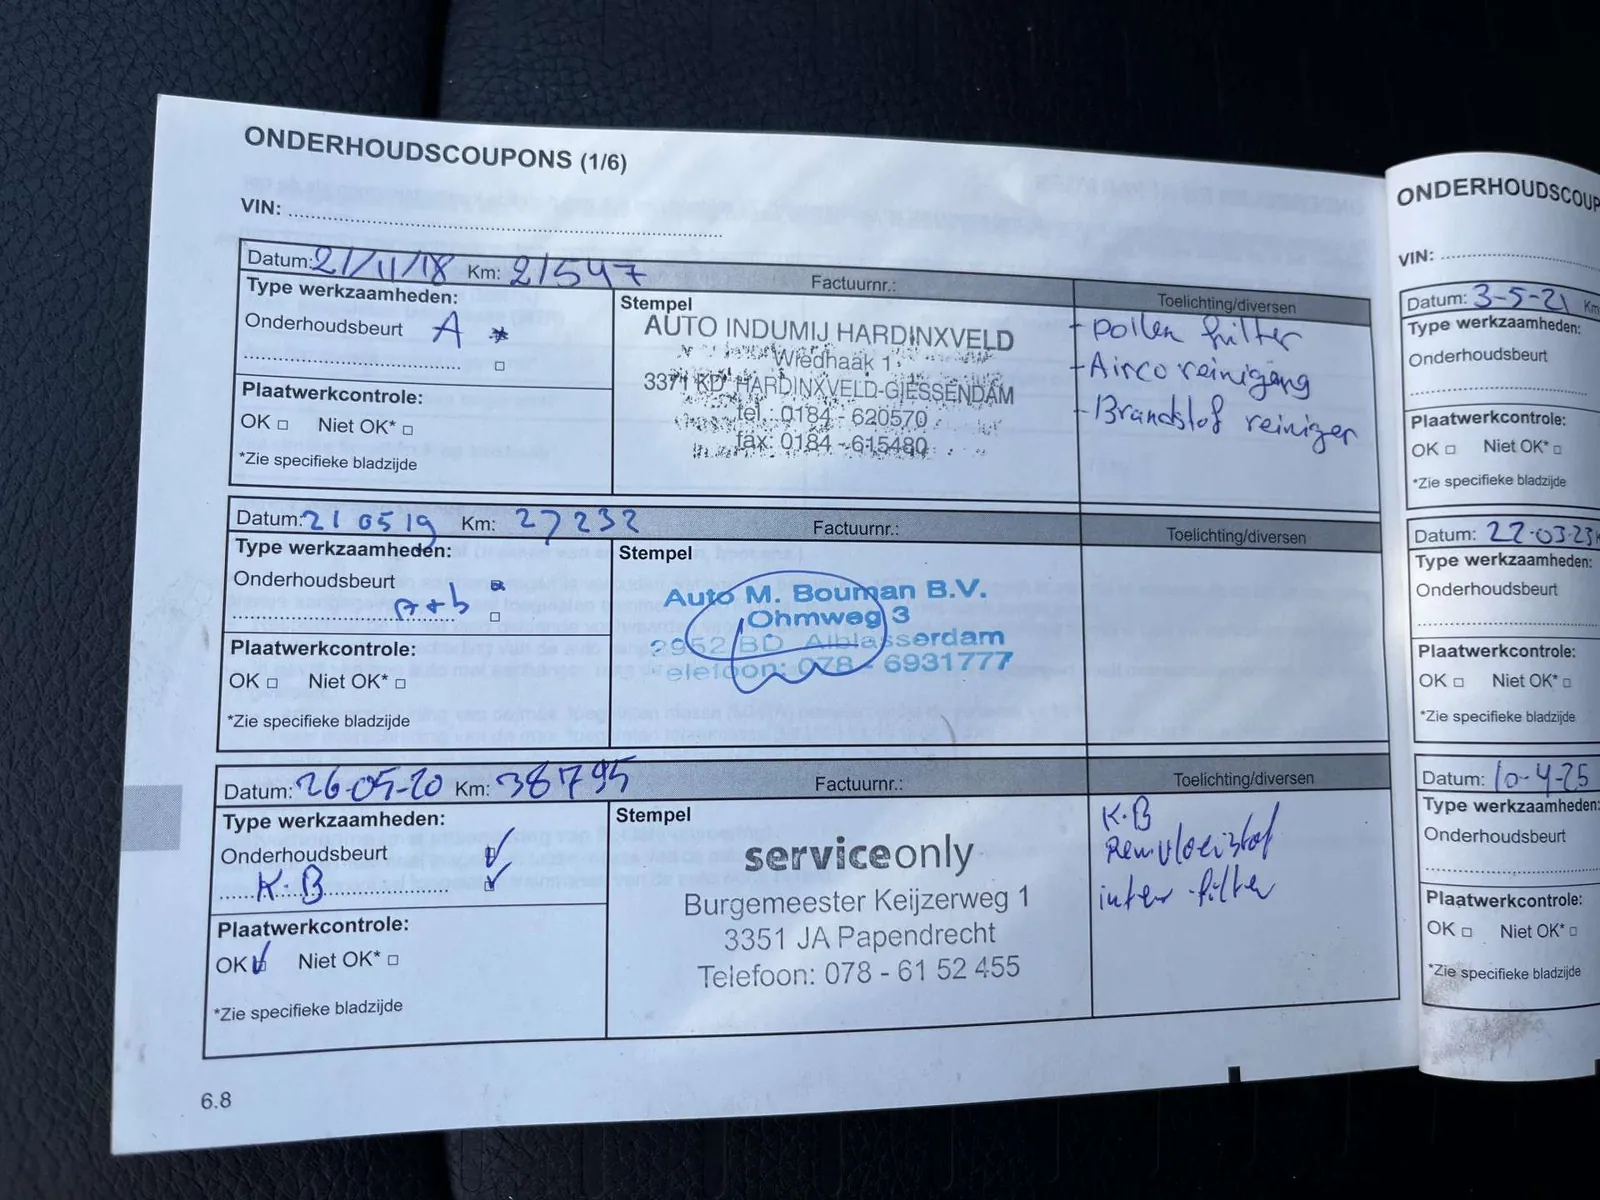 ONDERHOUDSCOUPONS (1/6)
VIN:
Datum: 21/11/18 Km: 21547 Factuurnr.: Toelichting/diversen
Type werkzaamheden:
Onderhoudsbeurt A
Plaatwerkcontrole:
OK Niet OK*
*Zie specifieke bladzijde
Stempel
AUTO INDUMIJ HARDINXVELD
Wiedhaak 1
3371 KD HARDINXVELD-GIESSENDAM
tel.: 0184 - 620570
fax: 0184 - 615480
- pollen filter
- Airco reiniging
- Brandstof reiniger
Datum: 21 05 19 Km: 27232 Factuurnr.: Toelichting/diversen
Type werkzaamheden:
Onderhoudsbeurt
A + b
Plaatwerkcontrole:
OK Niet OK*
*Zie specifieke bladzijde
Stempel
Auto M. Bouman B.V.
Ohmweg 3
2952 BD Alblasserdam
Telefoon: 078 - 6931777
Datum: 26-05-20 Km: 38795 Factuurnr.: Toelichting/diversen
Type werkzaamheden:
Onderhoudsbeurt
K.B
Plaatwerkcontrole:
OK Niet OK*
*Zie specifieke bladzijde
Stempel
serviceonly
Burgemeester Keijzerweg 1
3351 JA Papendrecht
Telefoon: 078 - 61 52 455
K.B
Remvloeistof
inter filter
6.8
ONDERHOUDSCOUP
VIN:
Datum: 3-5-21 Km
Type werkzaamheden:
Onderhoudsbeurt
Plaatwerkcontrole:
OK Niet OK*
*Zie specifieke bladzijde
Datum: 22-03-23 K
Type werkzaamheden:
Onderhoudsbeurt
Plaatwerkcontrole:
OK Niet OK*
*Zie specifieke bladzijde
Datum: 10-4-25
Type werkzaamheden:
Onderhoudsbeurt
Plaatwerkcontrole:
OK Niet OK*
*Zie specifieke bladzijde